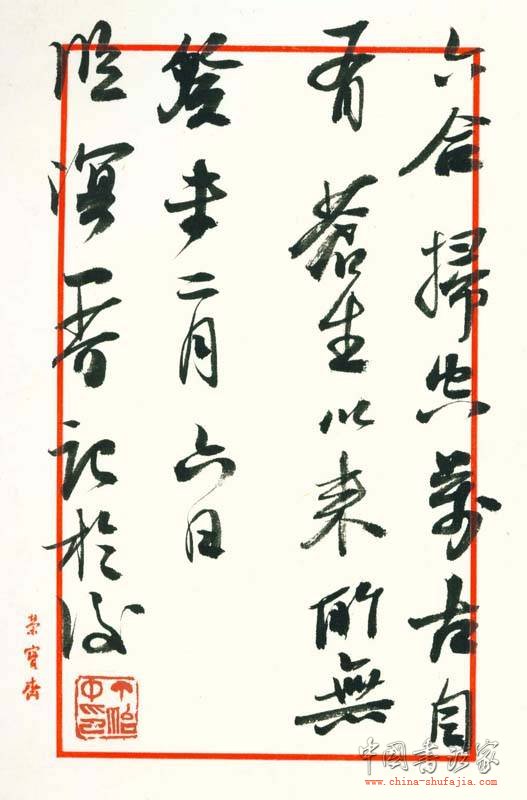 六合掃空萬古自
有蒼生以来所無
癸未二月六日
臨溟晋记於後
榮寶齋
中国书法家
www.china-shufajia.com